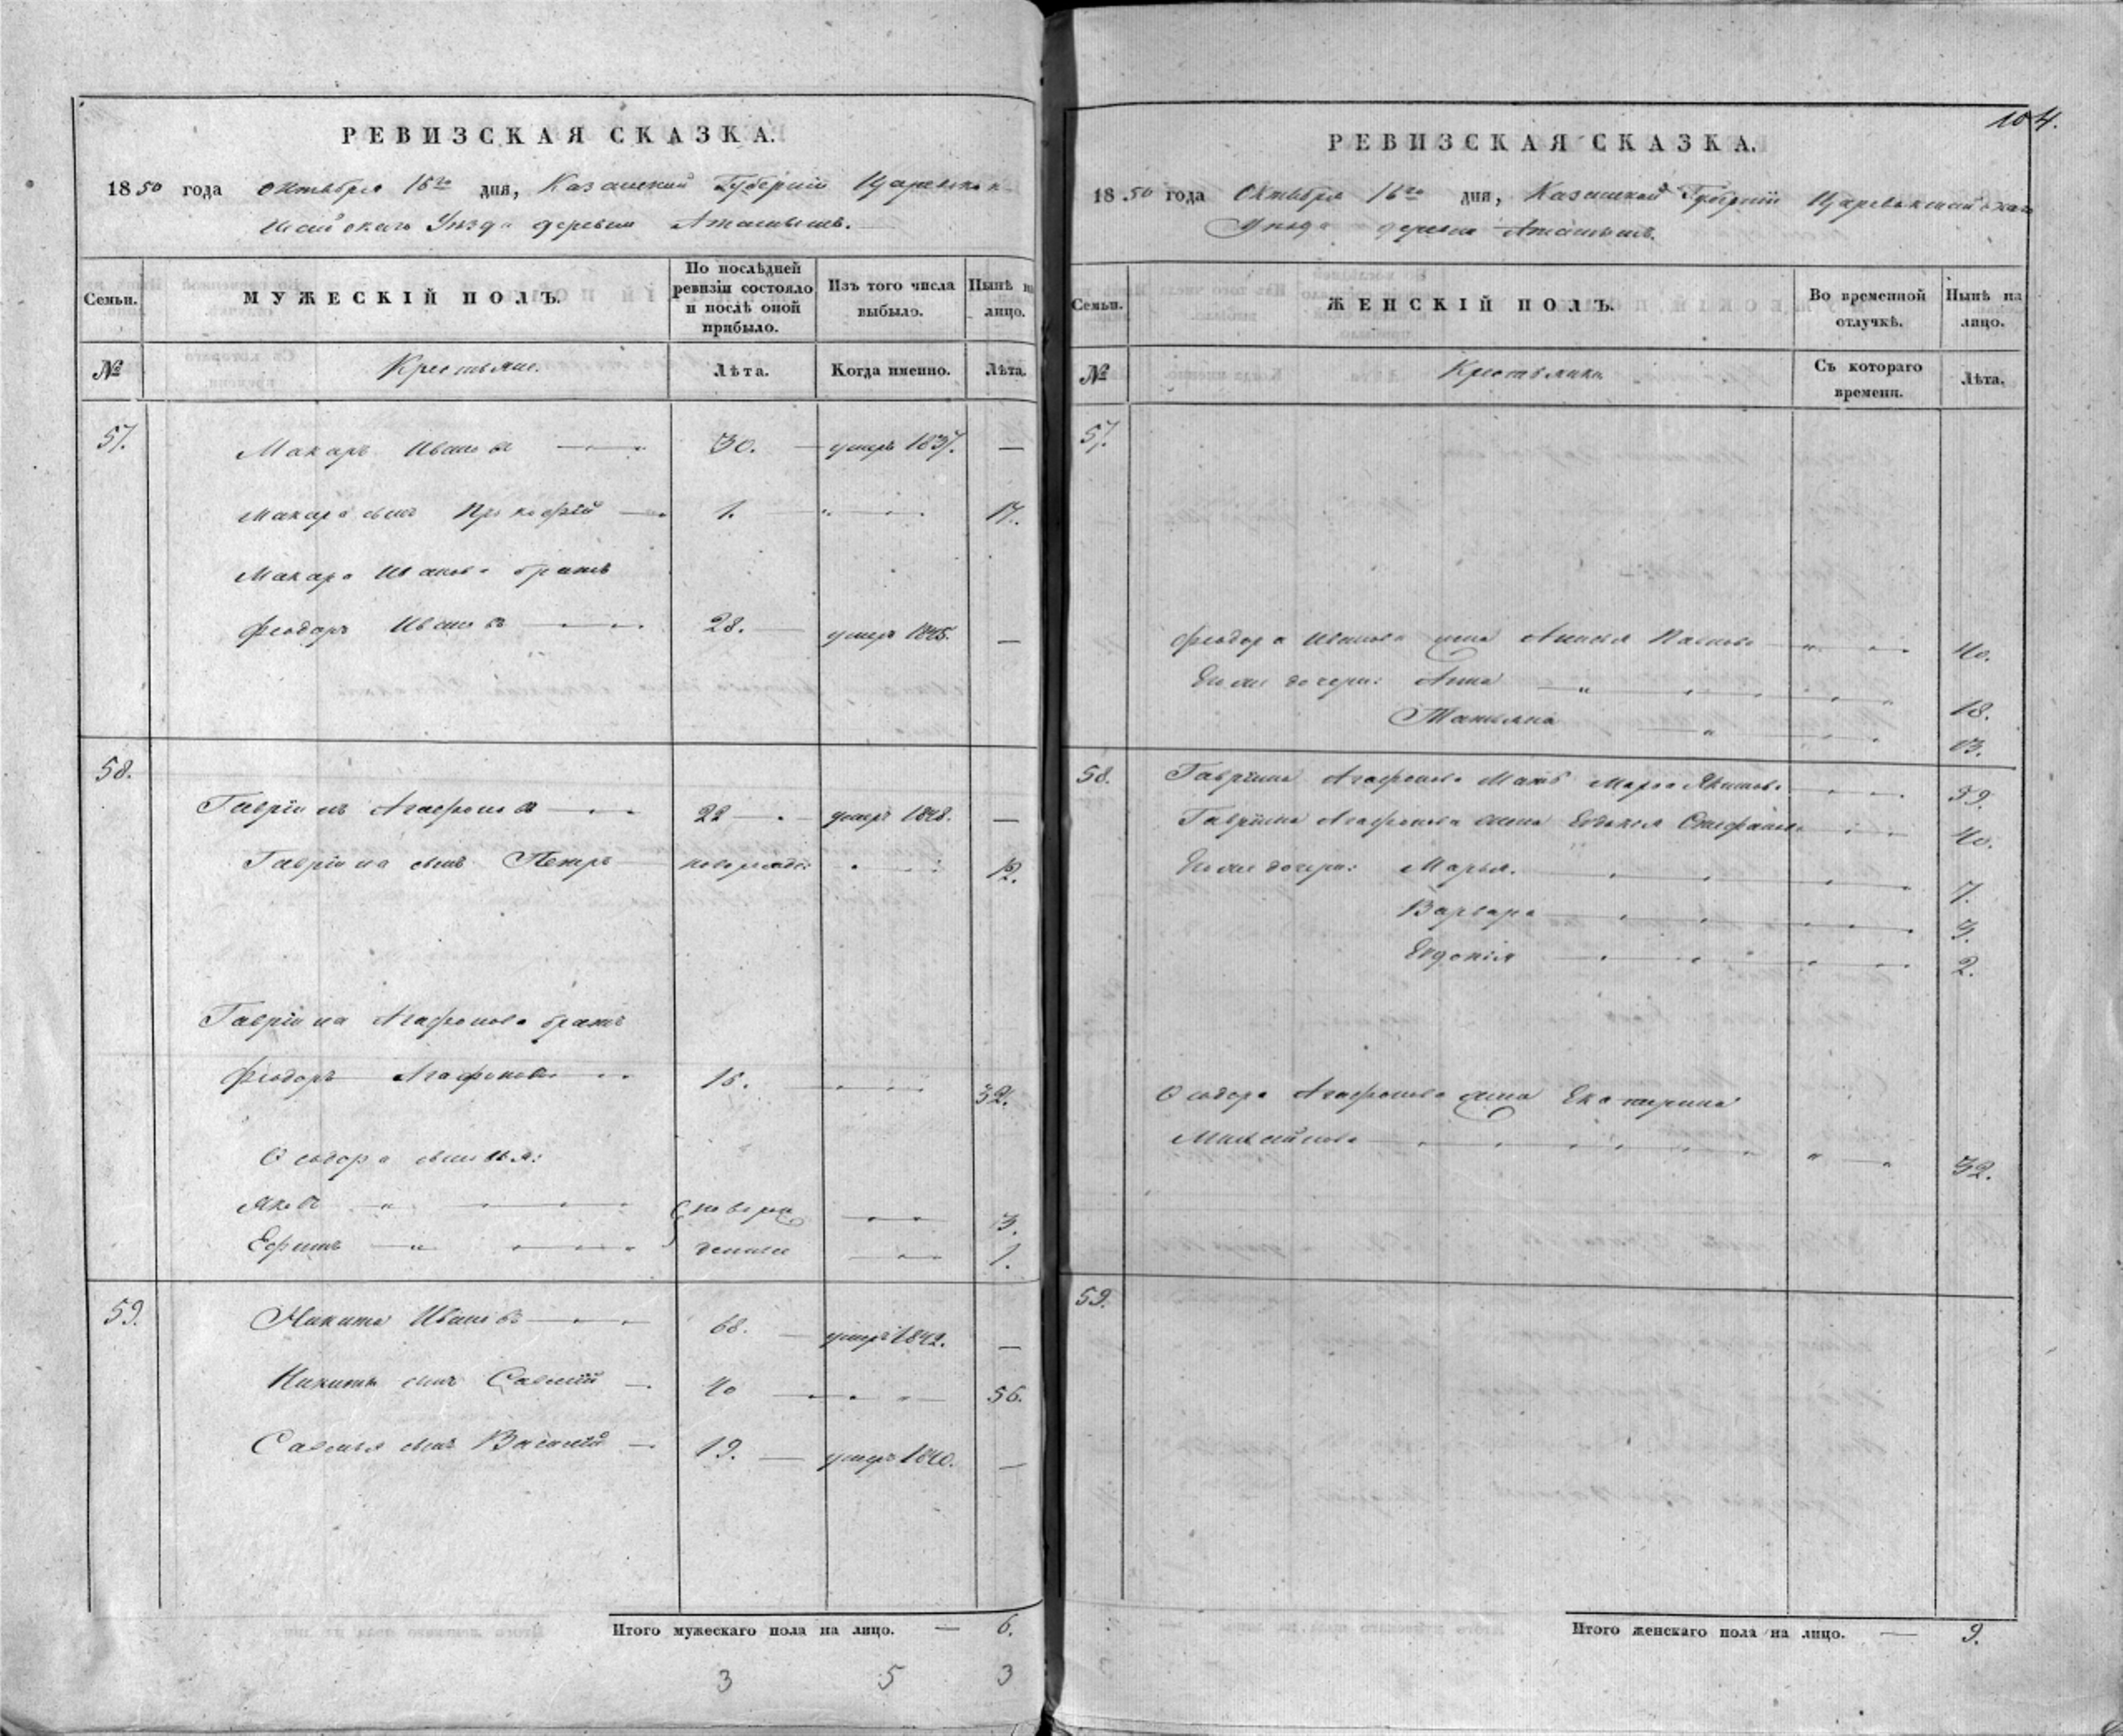 РЕВИЗСКАЯ СКАЗКА.
1850 года Октября 16го дня, Казанской Губернiи Царевокок-
шайскаго Уѣзда деревни
Семьи.
МУЖЕСКIЙ ПОЛЪ.
По послѣдней ревизiи состояло и послѣ оной прибыло.
Изъ того числа выбыло.
Нынѣ на лицо.
№
Крестьяне.
Лѣта.
Когда именно.
Лѣта.
57. Макаръ Ивановъ 30. умеръ 1837. —
Макара сынъ Прокофiй 1. 17.
Макара Иванова братъ
Феодоръ Ивановъ 28. умеръ 1845. —
58.
Гаврiилъ Агафоновъ 22 умеръ 1848. —
Гаврiила сынъ Петръ новорожд: 12.
Гаврiила Агафонова братъ
Феодоръ Агафоновъ 15. 32.
Ѳеодора сыновья:
Яковъ новорож 3.
Ефимъ денные 1.
59. Никита Ивановъ 68. умеръ 1842. —
Никиты сынъ Савелiй 40 56.
Савелья сынъ Василiй 19. умеръ 1840. —
Итого мужескаго пола на лицо. — 6.
3 5 3
104.
РЕВИЗСКАЯ СКАЗКА.
1850 года Октября 16го дня, Казанской Губернiи Царевококшайскаго
Уѣзда деревни
Семьи.
ЖЕНСКIЙ ПОЛЪ.
Во временной отлучкѣ.
Нынѣ на лицо.
№
Крестьянки
Съ котораго времени.
Лѣта.
57.
Феодора Иванова жена 40.
дочери: Анна 18.
Татьяна 13.
58. Гаврiила Агафонова Мать Якимова
Гаврiила Агафонова жена Евдокiя Стефанова 40.
дочери: Марья. 7.
Варвара 3.
Евдокiя 2.
Ѳеодора Агафонова жена Екатерина
Михайлова 32.
59.
Итого женскаго пола на лицо. — 9.